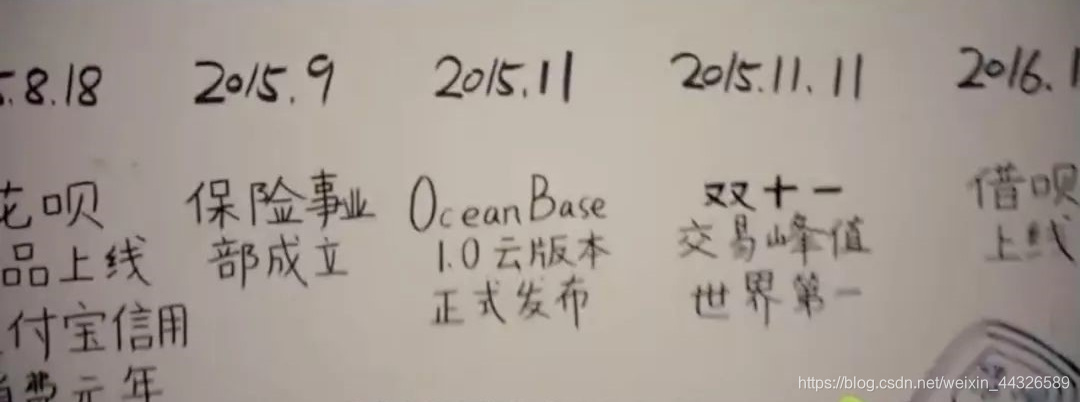 5.8.18
花呗
品上线
付宝信用
消费元年
2015.9
保险事业
部成立
2015.11
OceanBase
1.0云版本
正式发布
2015.11.11
双十一
交易峰值
世界第一
2016.1
借呗
上线
https://blog.csdn.net/weixin_44326589